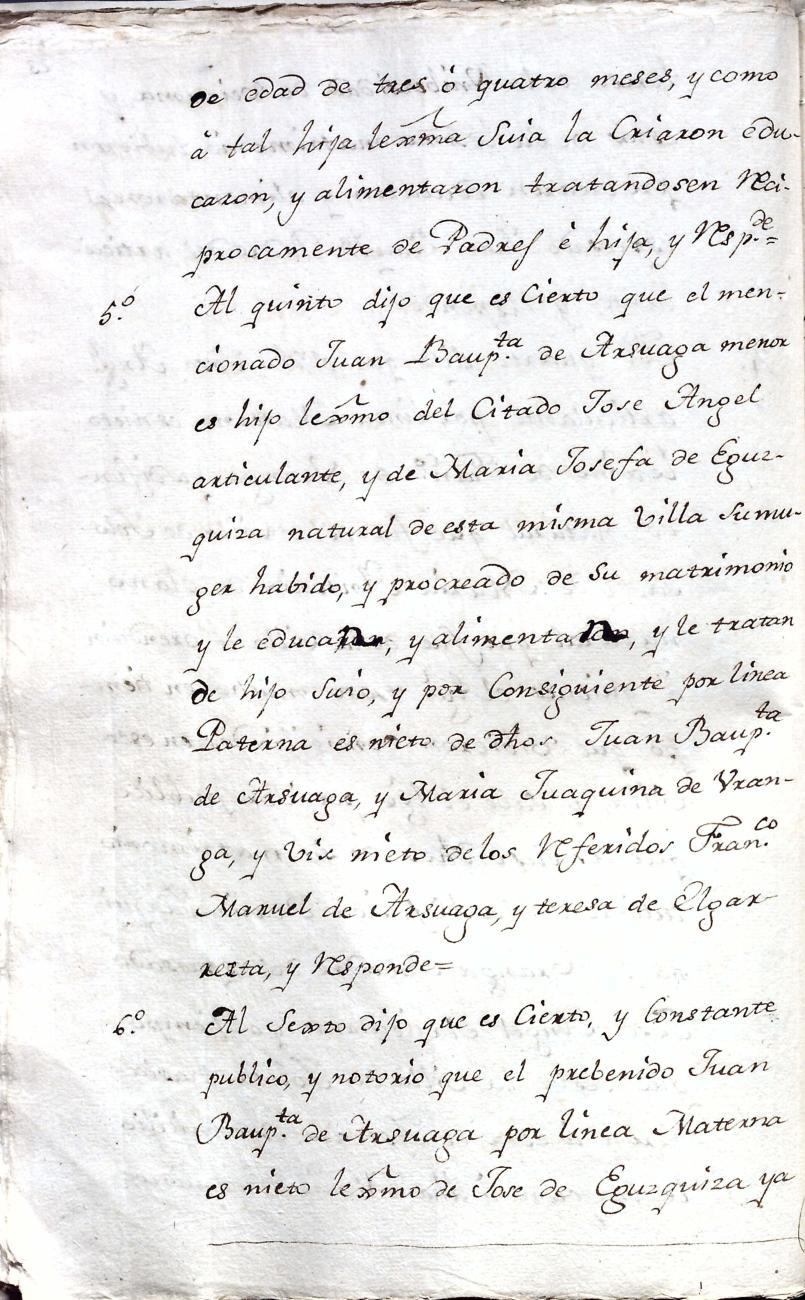 de edad de tres ó quatro meses, y como
á tal hija lexma Suia la Criaron edu-
caron, y alimentaron tratandosen Reci-
procamente de Padres é hija, y Resp.de=
5.º Al quinto dijo que es Cierto que el men-
cionado Juan Baup.ta de Arsuaga menor
es hijo lexmo del Citado Jose Angel
articulante, y de Maria Josefa de Eguz-
quiza natural de esta misma Villa Sumu-
ger habido, y procreado de Su matrimonio
y le educa, y alimenta, y le tratan
de hijo Suio, y por Consiguiente por linea
Paterna es nieto de dhos Juan Baup.ta
de Arsuaga, y Maria Juaquina de Vran-
ga, y vis nieto delos Referidos Fran.co
Manuel de Arsuaga, y teresa de Elgar-
resta, y Responde=
6.º Al Sexto dijo que es Cierto, y Constante
publico, y notorio que el prebenido Juan
Baup.ta de Arsuaga por linea Materna
es nieto lexmo de Jose de Eguzquiza ya